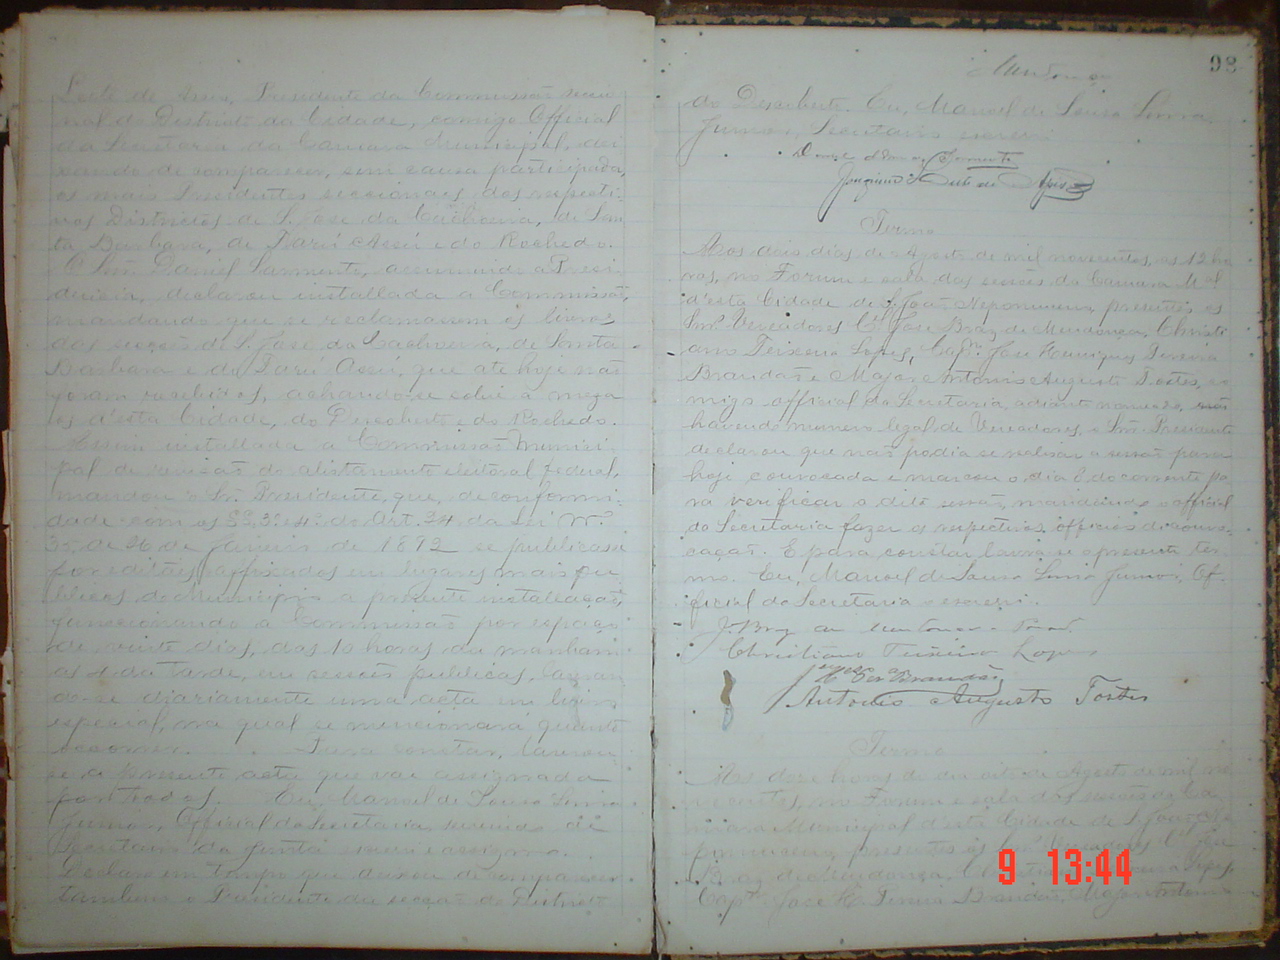 Leite de Assis, Presidente da Commissão seccio
nal do Districto da Cidade, comigo Official
da Secretaria da Camara Municipal, dei
xando de comparecer, sem causa participada,
os mais Presidentes seccionaes dos respecti-
vos Districtos de S. José da Cachoeira, de San
ta Barbara, de Tarú Assú e do Rochedo.
O Snr. Daniel Sarmento, assumindo a Presi
dencia, declarou installada a Commissão,
mandando que se reclamassem os livros
das secções de S. José da Cachoeira, de Santa
Barbara e do Tarú Assú, que até hoje não
foram recebidos, achando-se sobre a meza
os d'esta Cidade, do Descoberto e do Rochedo.
Assim installada a Commissão Munici
pal de revisão do alistamento eleitoral federal,
mandou o Sr. Presidente que, de conformi-
dade com os §§ 3º e 4º do Art. 24 da Lei Nº
35, de 26 de Janeiro de 1892 se publicasse
por editães affixados em lugares mais pu
blicos do Municipio a presente installação,
funccionando a Commissão por espaço
de vinte dias, das 10 horas da manham
as 4 da tarde, em secções publicas, lavran
do-se diariamente uma acta em livro
especial, na qual se mencionará quanto
occorrer. Para constar, lavrou-
se a presente acta que vae assignada
por todos. Eu, Manoel de Souza Lima
Junior, Official da Secretaria, servindo de
Secretario da junta escrevi e assigno.
Declaro em tempo que deixou de comparecer
tambem o Presidente da secção do Districto
98
Mendonça
do Descoberto. Eu, Manoel de Souza Lima
Junior, Secretario escrevi
Daniel Sarmento
Joaquim Leite de Assis
Termo
Aos dois dias de Agosto de mil novecentos, as 12 ho
ras, no Forum e sala das sessões da Camara Mal
d'esta Cidade de S. João Nepomuceno, presentes os
Snrs. Vereadores Cel. José Braz de Mendonça, Christi
ano Teixeira Lopes, Capm. José Henriques Pereira
Brandão e Major Antonio Augusto Tostes, co
migo official da Secretaria, adiante nomeado, não
havendo numero legal de Vereadores, o Snr. Presidente
declarou que não podia se realisar a sessão para
hoje convocada e marcou o dia 8 do corrente pa
ra verificar a dita sessão, mandando o official
da Secretaria fazer os respectivos officios de convo-
cação. E para constar lavrou-se o presente ter
mo. Eu, Manoel de Souza Lima Junior, Of-
ficial da Secretaria o escrevi.
J. Braz de Mendonça
Christiano Teixeira Lopes
Brandão
Antonio Augusto Tostes
Termo
Aas doze horas do dia oito de Agosto de mil no
vecentos, no Forum e sala das sessões da Ca
mara Municipal d'esta Cidade de S. João Ne
pomuceno, presentes os Snrs. Vereadores Cel. José
Braz de Mendonça, Christiano Teixeira Lopes,
Capm. José H. Pereira Brandão, Major Antonio
9 13:44